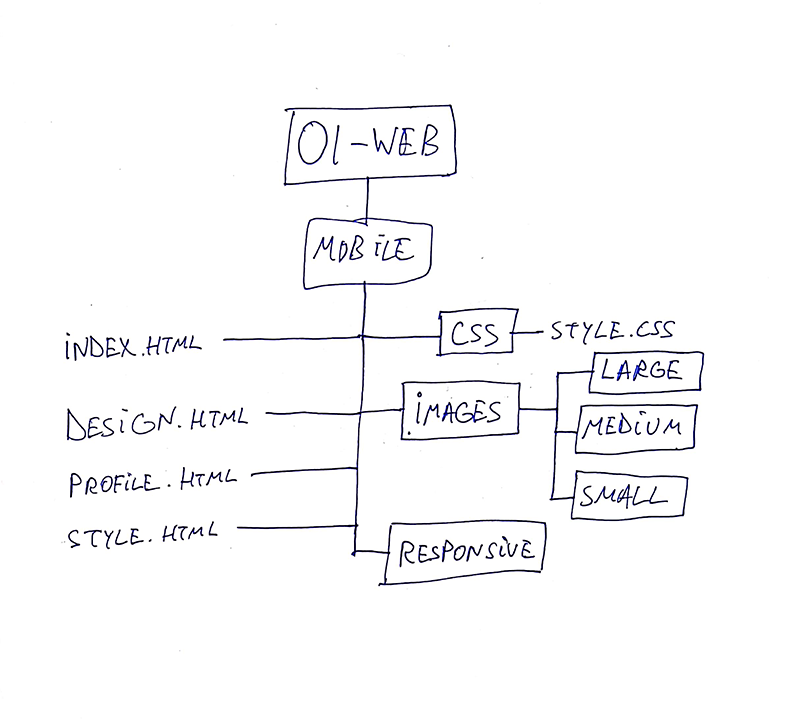 01-WEB
MOBiLE
iNDEX.HTML
CSS
STYLE.CSS
LARGE
DESiGN.HTML
iMAGES
MEDiUM
PROFiLE.HTML
SMALL
STYLE.HTML
RESPONSiVE